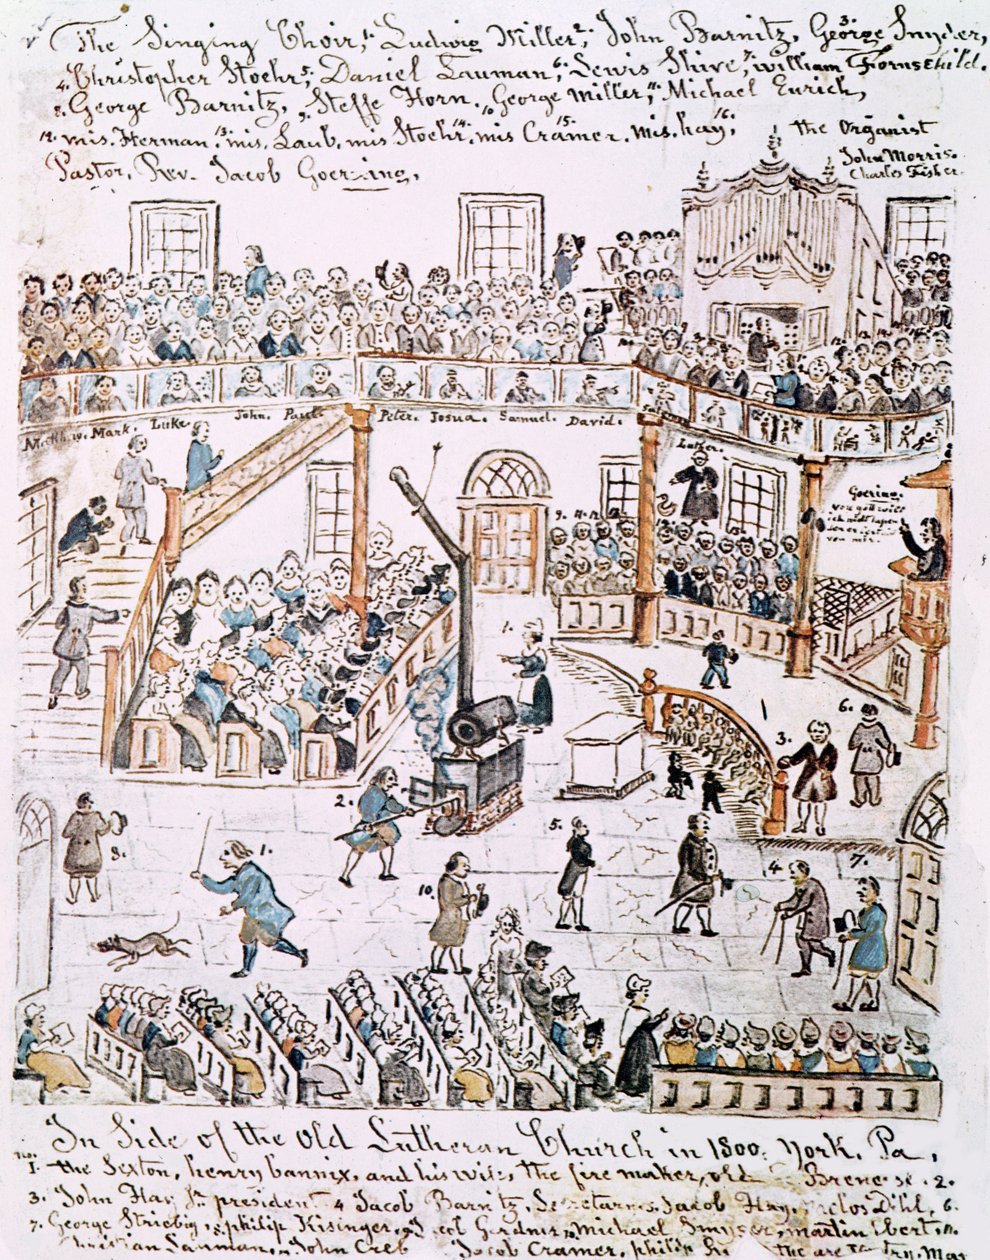 The Singing Choir, 1. Ludwig Miller, 2. John Barnitz, 3. George Snyder,
4. Christopher Stoehr, 5. Daniel Lauman, 6. Lewis Shive, 7. william Fornshild.
8. George Barnitz, 9. Steffe Horn. 10. George Miller, 11. Michael Eurich,
12. mis. Herman. 13. mis. Laub, mis Stoehr. 14. mis Cramer. 15. mis. hay, 16. the Organist
John Morris.
Charles Fisher.
Pastor. Rev. Jacob Goerring.
Mark. Luke. John. Paul. Peter. Josua. Samuel. David.
Luther.
Goering.
von gott will
ich nicht
von mir.
9. 10. 11. 12.
1.
3.
6.
2.
8.
1.
5.
10.
4
7.
In Side of the Old Lutheran Church in 1800, York, Pa,
no.
1. the Sexton, henry bannix, and his wife, the fire maker, old 2.
3. John Hay, Jr. president. 4 Jacob Barnitz, Jacob Hay, 6.
7. George Striebig, 8 philip Kisinger, michael martin Ebert
Christian Lauman, John Jacob Cramer, philip